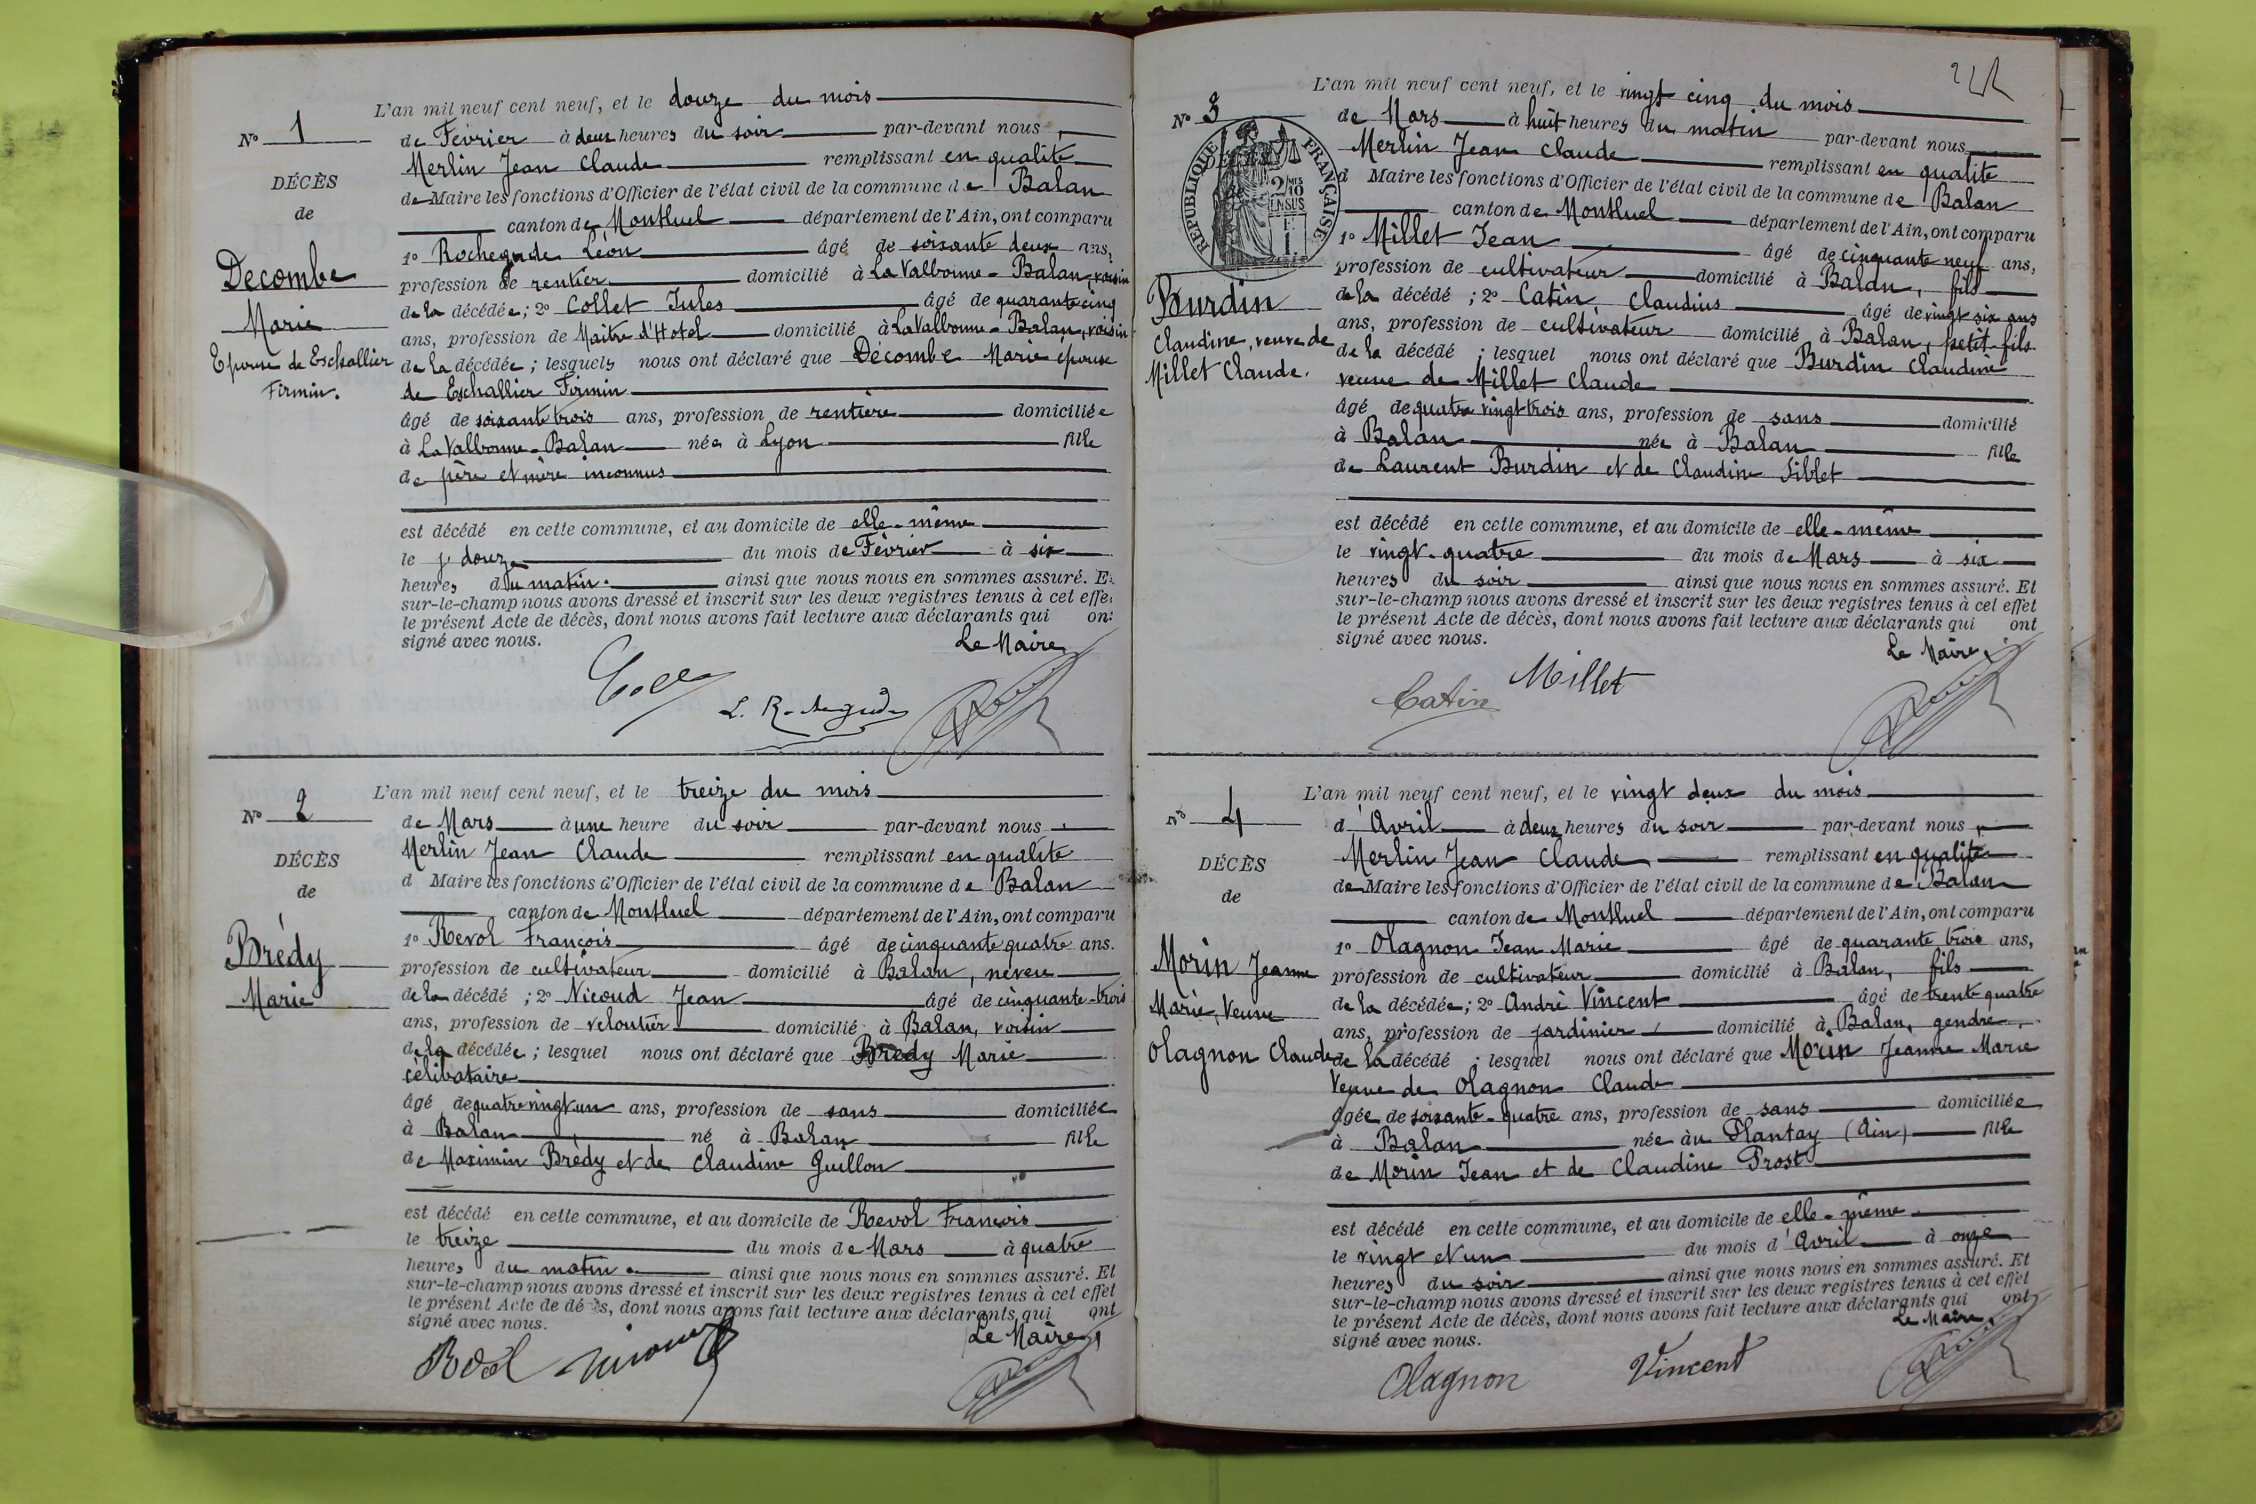 L'an mil neuf cent neuf, et le douze du mois
N° 1
de Février à deux heures du soir par-devant nous
Merlin Jean Claude remplissant en qualité
DÉCÈS
de Maire les fonctions d'Officier de l'état civil de la commune de Balan
de
canton de Montluel département de l'Ain, ont comparu
1° Rochegude Léon âgé de soixante deux ans,
Decombe
profession de rentier domicilié à La Valbonne-Balan, voisin
de la décédée; 2° Collet Jules âgé de quarante cinq
Marie
ans, profession de Maître d'Hotel domicilié à La Valbonne-Balan, voisin
Epouse de Eschallier
de la décédée; lesquels nous ont déclaré que Décombe Marie épouse
Firmin.
de Eschallier Firmin
âgé de soixante trois ans, profession de rentière domiciliée
à La Valbonne-Balan née à Lyon fille
de père et mère inconnus
est décédé en cette commune, et au domicile de elle-même
le douze du mois de Février à six
heures du matin. ainsi que nous nous en sommes assuré. Et
sur-le-champ nous avons dressé et inscrit sur les deux registres tenus à cet effe
le présent Acte de décès, dont nous avons fait lecture aux déclarants qui ont
signé avec nous. Le Maire
L. Rochegude
L'an mil neuf cent neuf, et le treize du mois
N° 2
de Mars à une heure du soir par-devant nous
Merlin Jean Claude remplissant en qualité
DÉCÈS
d Maire les fonctions d'Officier de l'état civil de la commune de Balan
de
canton de Montluel département de l'Ain, ont comparu
1° Revol François âgé de cinquante quatre ans.
Brédy
profession de cultivateur domicilié à Balan, neveu
Marie
de la décédé; 2° Nicoud Jean âgé de cinquante-trois
ans, profession de veloutier domicilié à Balan, voisin
de la décédée; lesquel nous ont déclaré que Brédy Marie
célibataire
âgé de quatre vingt un ans, profession de sans domiciliée
à Balan né à Balan fille
de Maximin Brédy et de Claudine Guillon
est décédé en cette commune, et au domicile de Revol François
le treize du mois de Mars à quatre
heures du matin. ainsi que nous nous en sommes assuré. Et
sur-le-champ nous avons dressé et inscrit sur les deux registres tenus à cet effet
le présent Acte de décès, dont nous avons fait lecture aux déclarants qui ont
signé avec nous. Le Maire,
Revol Nicoud
L'an mil neuf cent neuf, et le vingt cinq du mois
N° 3
de Mars à huit heures du matin par-devant nous
RÉPUBLIQUE FRANÇAISE
2/10 EN SUS
Merlin Jean Claude remplissant en qualité
d Maire les fonctions d'Officier de l'état civil de la commune de Balan
canton de Montluel département de l'Ain, ont comparu
1° Millet Jean âgé de cinquante neuf ans,
profession de cultivateur domicilié à Balan, fils
Burdin
de la décédé; 2° Catin Claudius âgé de vingt six ans
ans, profession de cultivateur domicilié à Balan, petit-fils
Claudine, veuve de
de la décédé; lesquel nous ont déclaré que Burdin Claudine
Millet Claude.
veuve de Millet Claude
âgé de quatre vingt trois ans, profession de sans domicilié
à Balan née à Balan fille
de Laurent Burdin et de Claudine Liblet
est décédé en cette commune, et au domicile de elle-même
le vingt-quatre du mois de Mars à six
heures du soir ainsi que nous nous en sommes assuré. Et
sur-le-champ nous avons dressé et inscrit sur les deux registres tenus à cet effet
le présent Acte de décès, dont nous avons fait lecture aux déclarants qui ont
signé avec nous. Le Maire,
Catin Millet
L'an mil neuf cent neuf, et le vingt deux du mois
N° 4
d'Avril à deux heures du soir par-devant nous
Merlin Jean Claude remplissant en qualité
DÉCÈS
de Maire les fonctions d'Officier de l'état civil de la commune de Balan
de
canton de Montluel département de l'Ain, ont comparu
1° Olagnon Jean Marie âgé de quarante trois ans,
Morin Jeanne
profession de cultivateur domicilié à Balan, fils
Marie, Veuve
de la décédée; 2° André Vincent âgé de trente quatre
ans, profession de jardinier domicilié à Balan, gendre
Olagnon Claude
de la décédé; lesquel nous ont déclaré que Morin Jeanne Marie
Veuve de Olagnon Claude
âgée de soixante-quatre ans, profession de sans domiciliée
à Balan née au Plantay (Ain) fille
de Morin Jean et de Claudine Prost
est décédé en cette commune, et au domicile de elle-même
le vingt et un du mois d'Avril à onze
heures du soir ainsi que nous nous en sommes assuré. Et
sur-le-champ nous avons dressé et inscrit sur les deux registres tenus à cet effet
le présent Acte de décès, dont nous avons fait lecture aux déclarants qui ont
signé avec nous. Le Maire.
Olagnon Vincent